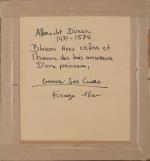 Albrecht Dürer
1471 - 1574
Blason avec crâne et
l'homme des bois amoureux
D'une princesse,
Gravure Sur Cuivre
tirage 16em